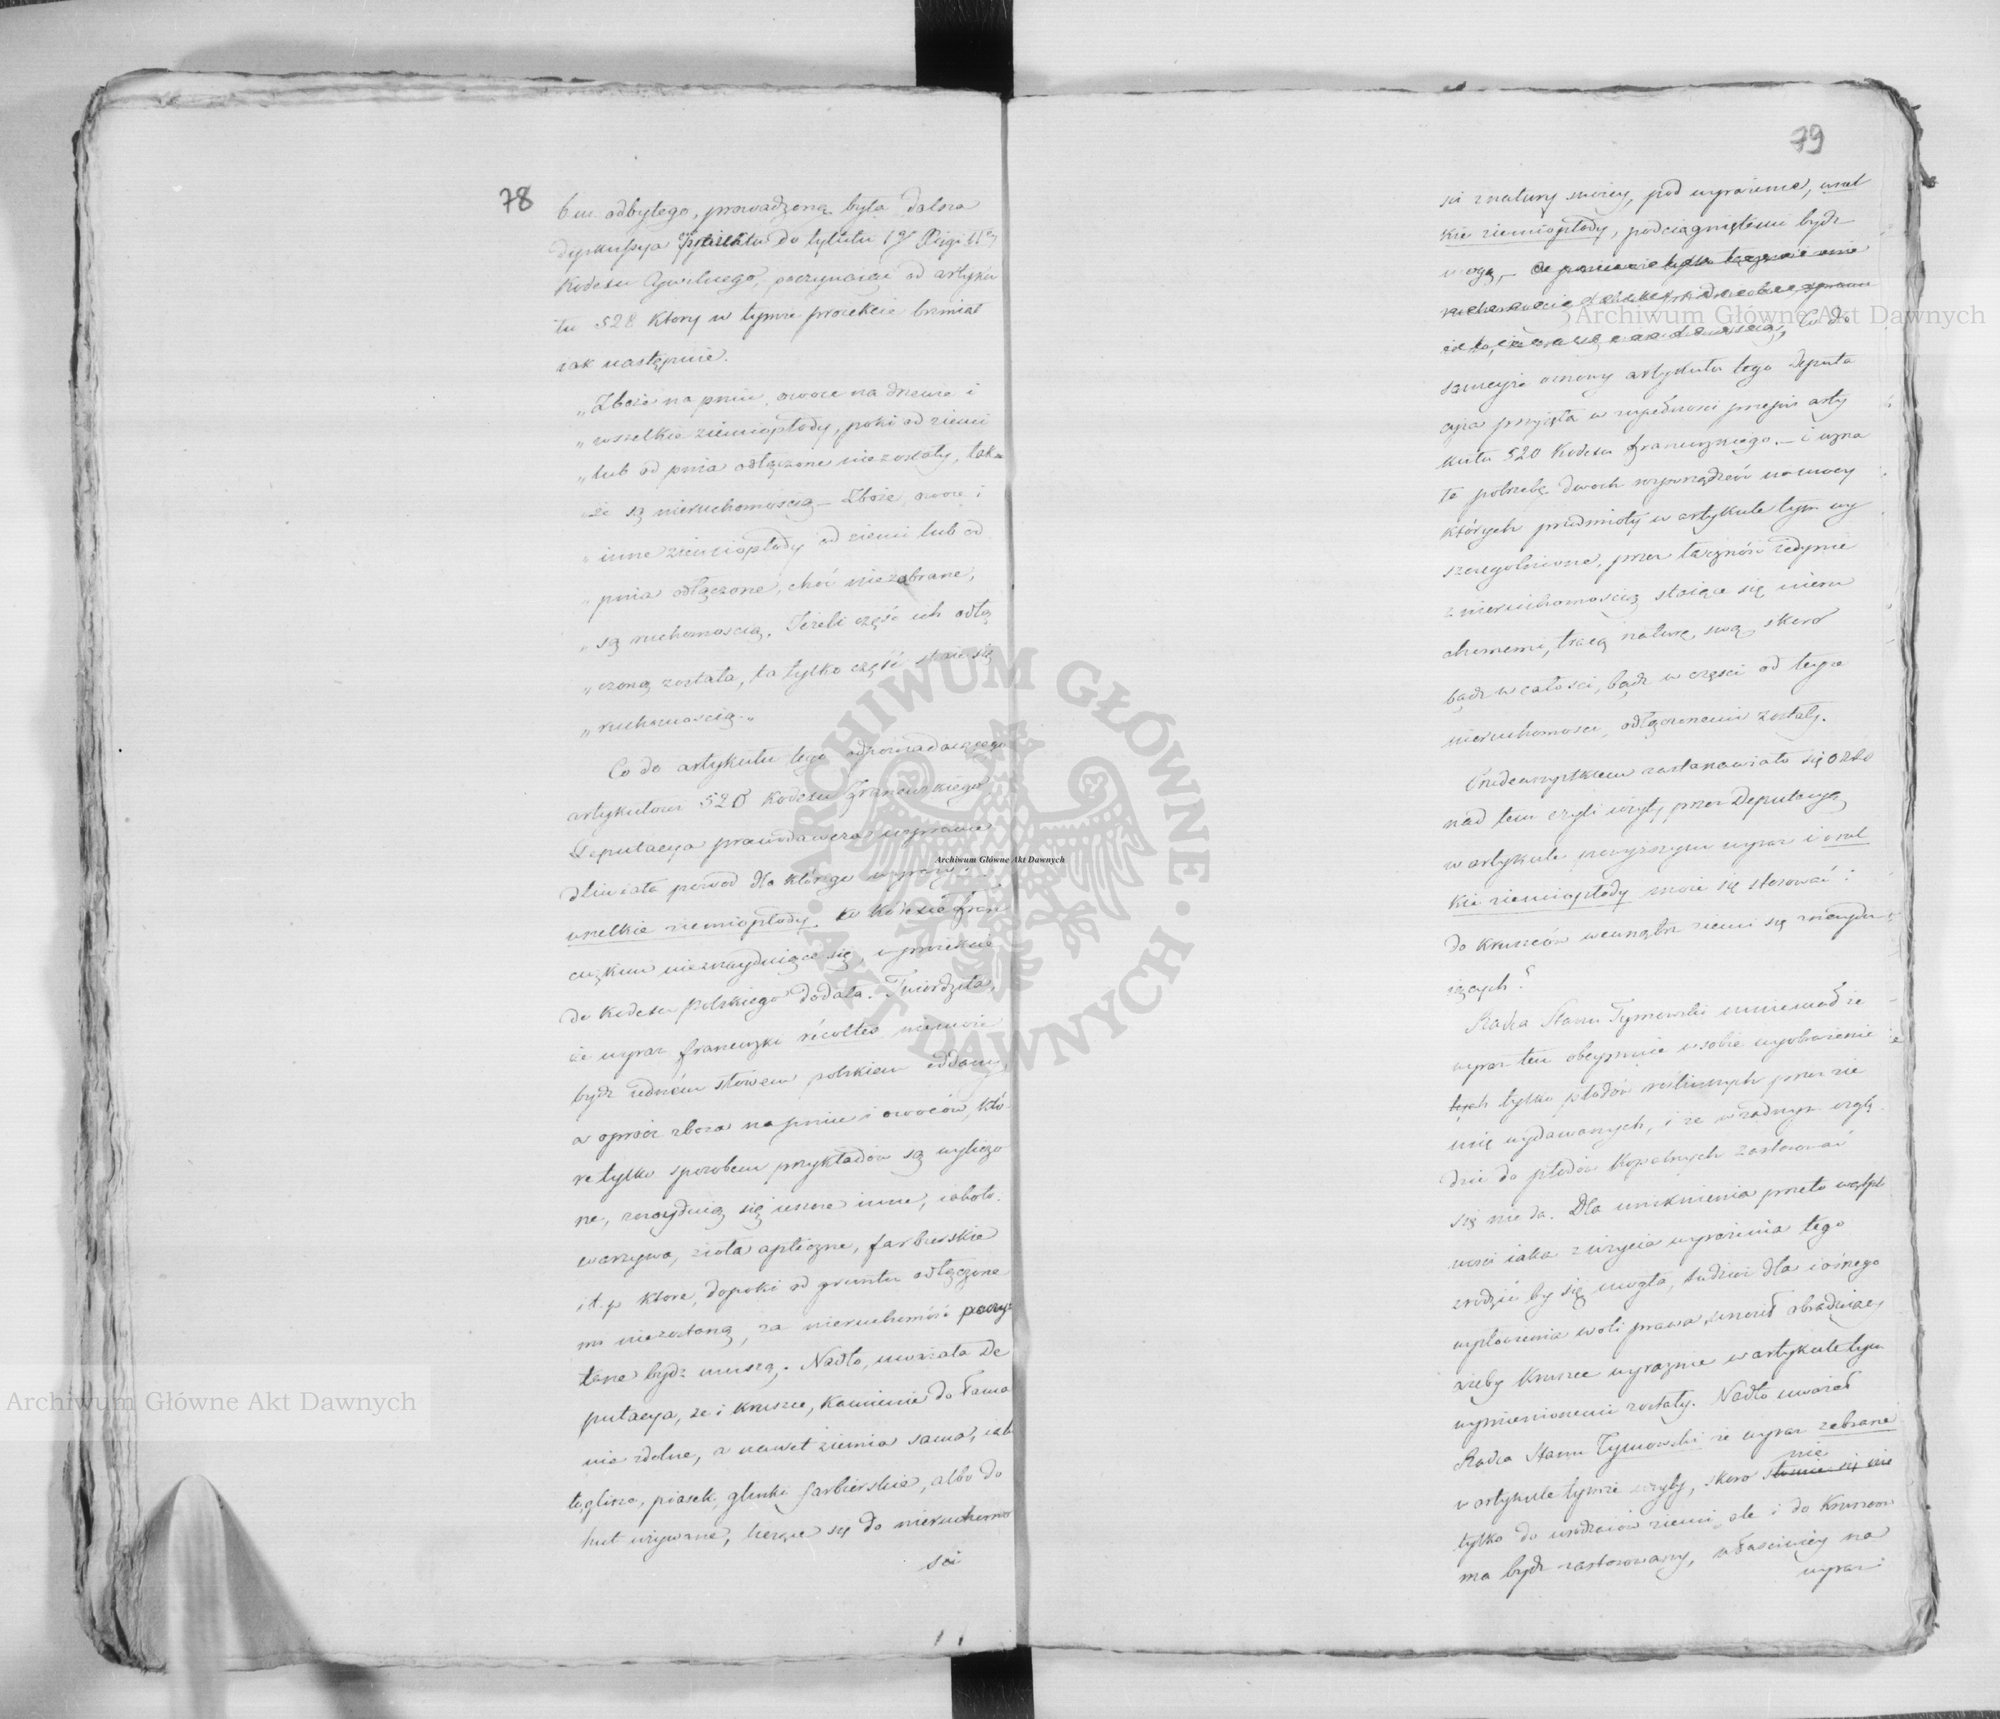 78
b. m. odbytego, prowadzoną była dalsza
dyskussya Projektu do tytułu 1go Xięgi IIey
Kodexu Cywilnego, poczynaiąc od artyku
łu 528 który w tymże proiekcie brzmiał
iak następuie.
„Zboże na pniu, owoce na drzewie i
„wszelkie ziemiopłody, póki od ziemi
„lub od pnia odłączone niezostały, tak
„że są nieruchomością – Zboże, owoce i
„inne ziemiopłody od ziemi lub od
„pnia odłączone, choć niezabrane,
„są ruchomością. Jeżeli część ich odłą
„czoną została, ta tylko część staie się
„ruchomością.„
Co do artykułu tego odpowiadaiącego
artykułowi 520 Kodexu Francuskiego,
Deputacya prawodawcza usprawie
dliwiała powód dla którego wyrazy:
wszelkie ziemiopłody w Kodexie fran
cuzkim nieznayduiące się, w proiekcie
do Kodexu Polskiego dodała. Twierdziła,
że wyraz francuzki récoltes niemoże
bydź iedném słowem polskiem oddany,
a oprócz zboża na pniu i owoców, któ
re tylko sposobem przykładów są wyliczo
ne, znayduią się ieszcze inne, iakoto:
warzywa, zioła apteczne, farbierskie
i t. p. które, dopóki od gruntu odłączone
mi niezostaną, za nieruchomość poczy
tane bydź muszą. Nadto, uważała De
putacya, że i kruszce, kamienie do łama
nia zdolne, a nawet ziemia sama, iako
to, glina, piasek, glinki farbierskie, albo do
hut używane, licząc się do nieruchomo
ści
79
ści z natury swoiey, pod wyrażenie, wszel
kie ziemiopłody, podciągniętemi bydź
mogą,
Co do
sankcyi osnowy artykułu tego Deputa
cya przyięła w zupełności przepis arty
kułu 520 Kodexu francuzkiego. – i uzna
ła potrzebę dwóch rozporządzeń na mocy
których przedmioty w artykule tym wy
szczególnione, przez łączność iedynie
z nieruchomością staiące się nieru
chomemi, tracą naturę swą, skoro
bądź w całości, bądź w części od teyże
nieruchomości, odłączonemi zostały.
Przedewszystkiem zastanawiało się oko
nad tem czyli użyty przez Deputacyą
w artykule powyższym wyraz i wszel
kie ziemiopłody może się stosować:
do kruszców wewnątrz ziemi się znaydu
iących?
Radca Stanu Tymowski mniemał że
wyraz ten obeymuie w sobie wyobrażenie
tych tylko płodów roślinnych przez zie
mię wydawanych, i że w żadnym wzglę
dzie do płodów kopalnych zastosować
się nieda. Dla uniknienia przeto wątpli
wości iaka z użycia wyrażenia tego
zrodzić by się mogła, tudzież dla iaśnego
wysłowienia woli prawa, wnosił obradujący
ażeby kruszce wyraźnie w artykule tym
wymienionemi zostały. Nadto uważał
Radca Stanu Tymowski że wyraz zebrane
w artykule tymże użyty, skoro nie
tylko do urodzaiów ziemi, ale i do kruszców
ma bydź zastosowany, właściwiey na
wyraz
Archiwum Główne Akt Dawnych
Archiwum Główne Akt Dawnych
Archiwum Główne Akt Dawnych
ARCHIWUM GŁÓWNE
AKT DAWNYCH